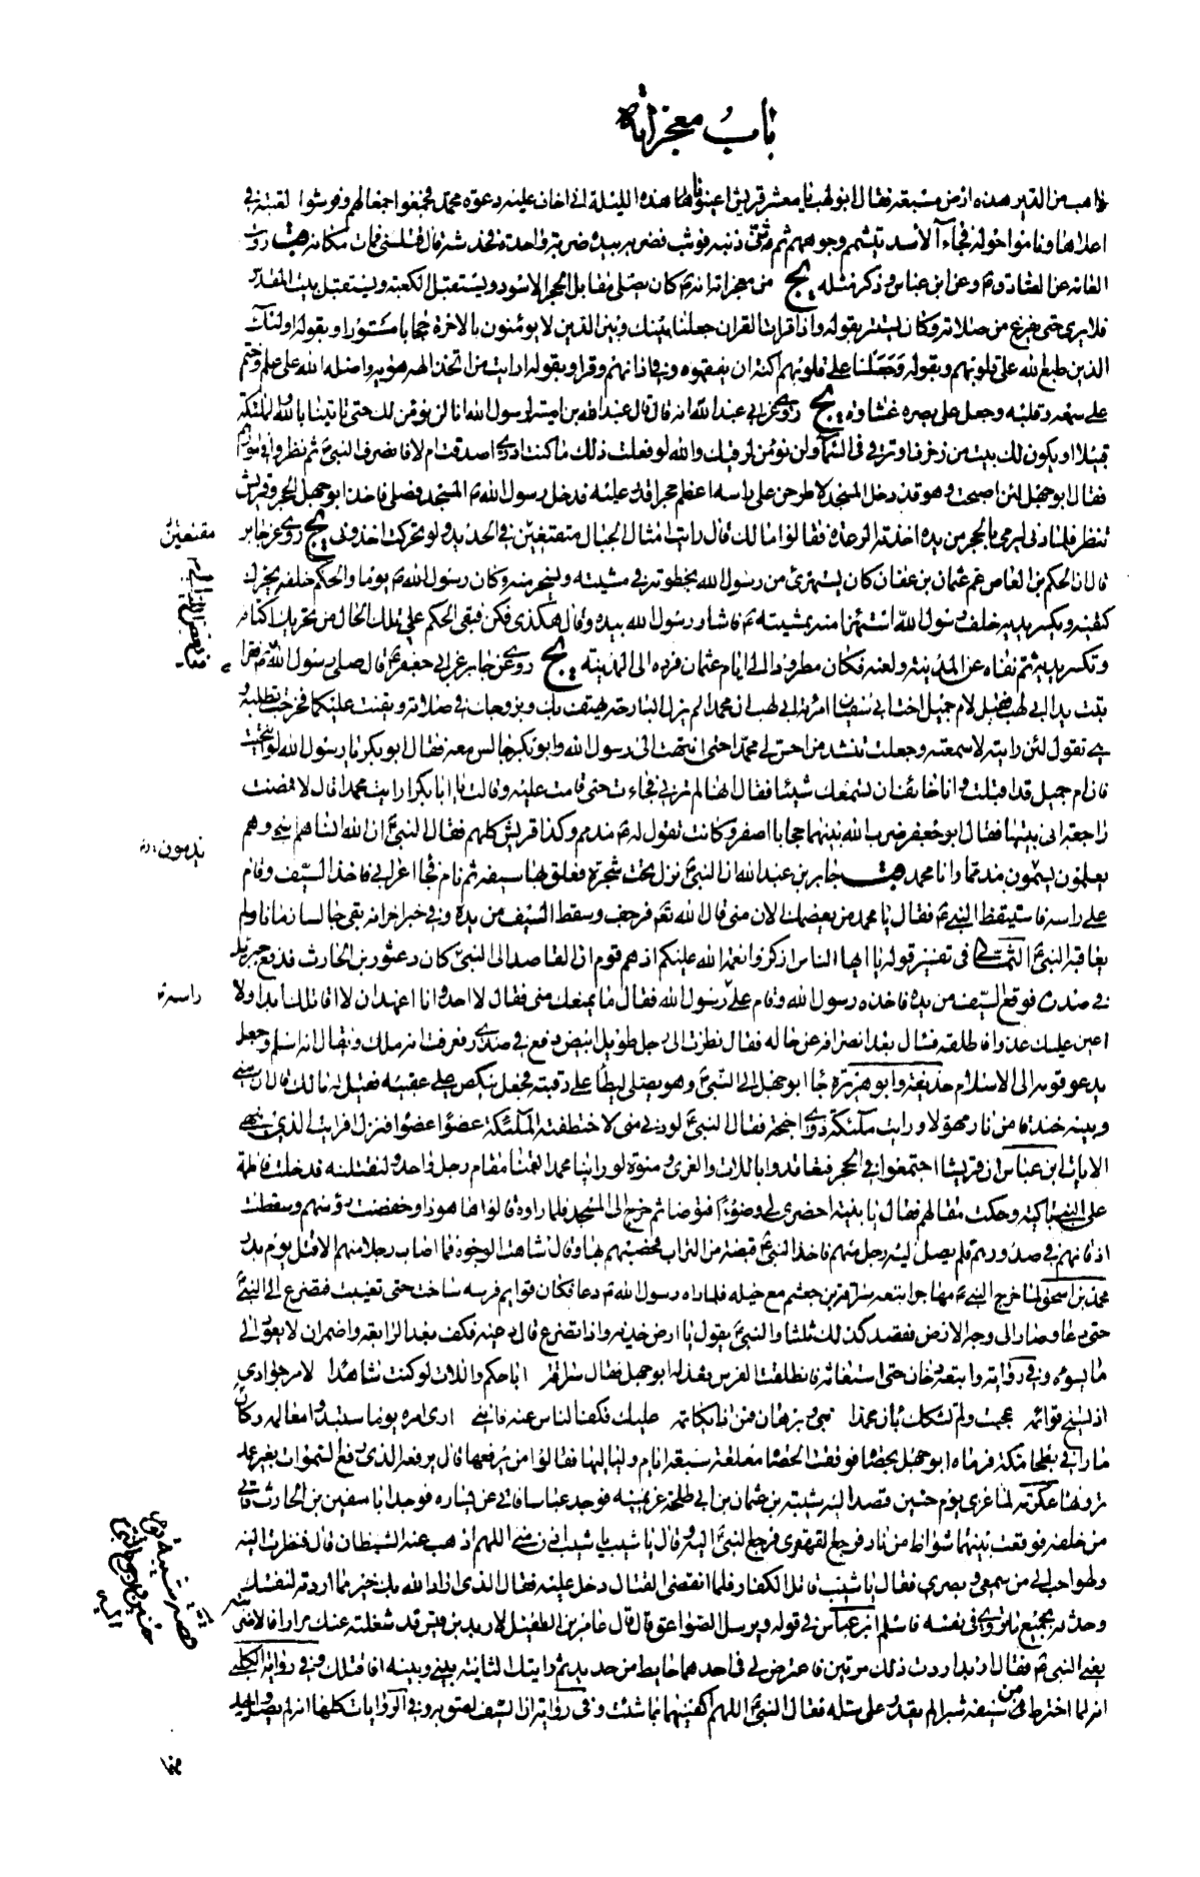 باب معجزاته
راهب من الدير هذه ارض مسبعة فقال ابو لهب يا معشر قريش اعينونا هذه الليلة انى اخاف عليه دعوة محمد فجمعوا جمالهم وفرشوا لعتبة فى
اعلاها وناموا حوله فجاء الاسد يتشمم وجوههم ثم ثنى ذنبه فوثب فضربه بيده ضربة واحدة فخدشه قال قتلنى فمات مكانه
عن الصادق ع وعن ابن عباس وذكر مثله يج من معجزاته انه ع كان يصلى مقابل الحجر الاسود ويستقبل الكعبة ويستقبل بيت المقدس
فلا يرى حتى يفرغ من صلاته وكان يستتر بقوله واذا قرات القران جعلنا بينك وبين الذين لا يؤمنون بالاخرة حجابا مستورا وبقوله اولئك
الذين طبع الله على قلوبهم وبقوله وجعلنا على قلوبهم اكنة ان يفقهوه وفى اذانهم وقرا وبقوله افرايت من اتخذ الهه هواه واضله الله على علم وختم
على سمعه وقلبه وجعل على بصره غشاوة يج روى عن ابى عبد الله انه قال قال عبد الله بن امية لرسول الله انا لن نؤمن لك حتى تاتينا بالله والملئكة
قبيلا او يكون لك بيت من زخرف او ترقى فى السماء ولن نؤمن لرقيك والله لو فعلت ذلك ما كنت ادرى اصدقت ام لا فانصرف النبى ثم نظروا فى
فقال ابو جهل لئن اصبحت وهو قد دخل المسجد لاطرحن على راسه اعظم حجر اقدر عليه فدخل رسول الله ص المسجد فصلى فاخذ ابو جهل الحجر وقريش
تنظر فلما دنى ليرمى بالحجر من يده اخذته الرعدة فقالوا ما لك قال رايت امثال الجبال متقنعين فى الحديد لو تحركت اخذونى يج روى عن جابر
قال ان الحكم بن العاص عم عثمان بن عفان كان يستهزئ من رسول الله بخطوته فى مشيته ويسخر منه وكان رسول الله ص يوما والحكم خلفه يحرك
كتفيه ويكسر يديه خلف رسول الله استهزاء منه بمشيته ع فاشار رسول الله بيده وقال هكذى فكن فبقى الحكم على تلك الحال من تحريك اكتافه
وتكسر يديه ثم نفاه عن المدينة ولعنه فكان مطرودا الى ايام عثمان فرده الى المدينة يج روى عن جابر عن ابى جعفر ع قال صلى رسول الله ص فقرا
تبت يدا ابى لهب فقيل لام جميل اخت ابى سفين امراة ابى لهب ان محمدا لم يزل البارحة يهتف بك وبزوجك فى صلاته ويقنت عليكما فخرجت تطلبه و
هى تقول لئن رايته لاسمعنه وجعلت تنشد من احس لى محمدا حتى انتهت الى رسول الله وابو بكر جالس معه فقال ابو بكر يا رسول الله لو تنحيت
فان ام جميل قد اقبلت وانا خائف ان تسمعك شيئا فقال انها لم ترنى فجاءت حتى قامت عليه وقالت يا ابا بكر ارايت محمدا قال لا فمضت
راجعة الى بيتها فقال ابو جعفر ضرب الله بينهما حجابا اصفر وكانت تقول له ع مذمم وكذا قريش كلهم فقال النبى ان الله انساهم اسمى وهم
يعلمون يسمون مذمما وانا محمد جابر بن عبد الله ان النبى نزل تحت شجرة فعلق بها سيفه ثم نام فجاء اعرابى فاخذ السيف وقام
على راسه فاستيقظ النبى ع فقال يا محمد من يعصمك الان منى قال الله تعم فرجف وسقط السيف من يده وفى خبر اخر انه بقى جالسا زمانا ولم
يعاقبه النبى الثمالى فى تفسير قوله يا ايها الناس اذكروا نعمة الله عليكم اذ هم قوم ان القاصد الى النبى كان دعثور بن الحارث فدفع جبرئيل
فى صدره فوقع السيف من يده فاخذه رسول الله وقام على رسول الله فقال ما يمنعك منى فقال لا احد وانا اعهد ان لا اقاتلك ابدا ولا
اعين عليك عدوا فاطلقه فسئل بعد انصرافه عن حاله فقال نظرت الى رجل طويل ابيض دفع فى صدرى فعرفت انه ملك ويقال انه اسلم وجعل
يدعو قومه الى الاسلام حذيفة وابو هريرة جاء ابو جهل الى النبى وهو يصلى ليطأ على رقبته فجعل ينكص على عقبيه فقيل له ما لك قال ان بينى
وبينه خندقا من نار مهولا ورايت ملئكة ذوى اجنحة فقال النبى لو دنى منى لاختطفته الملئكة عضوا عضوا فنزل افرايت الذى ينهى
الايات ابن عباس ان قريشا اجتمعوا فى الحجر فتعاقدوا باللات والعزى ومنوة لو راينا محمدا لقمنا مقام رجل واحد ولنقتلنه فدخلت فاطمة
على النبى باكية وحكت مقالهم فقال يا بنية احضرى لى وضوءا فتوضا ثم خرج الى المسجد فلما راوه قالوا ها هوذا وخفضت رؤسهم وسقطت
اذقانهم فى صدورهم فلم يصل اليه رجل منهم فاخذ النبى قبضة من التراب فحصبهم بها وقال شاهت الوجوه فما اصاب رجلا منهم الا قتل يوم بدر
محمد بن اسحق لما خرج النبى ع مهاجرا تبعه سراقة بن جعشم مع خيله فلما راه رسول الله ص دعا فكان قوايم فرسه ساخت حتى تغيبت فتضرع الى النبى
حتى دعا وصار الى وجه الارض فقصد كذلك ثلثا والنبى يقول يا ارض خذيه واذا تضرع قال دعيه فكف بعد الرابعة واضمر ان لا يعود الى
ما يسوءه وفى رواية واتبعه دخان حتى استغاثه فانطلقت الفرس فعذله ابو جهل فقال سراقة ابا حكم واللات لو كنت شاهدا لامر جوادى
اذ تسيخ قوائمه عجبت ولم تشكك بان محمدا نبى وبرهان فمن ذا يكاتمه عليك فكف الناس عنه فاننى ارى امره يوما ستبدو معالمه وكان
مارا فى بطحاء مكة فرماه ابو جهل بحصاة فوقفت الحصاة معلقة سبعة ايام ولياليها فقالوا من يرفعها قال يرفعه الذى رفع السموات بغير عمد
ترونها عكرمة لما غزى يوم حنين قصد اليه شيبة بن عثمان بن ابى طلحة عن يمينه فوجد عباسا فاتى عن يساره فوجد ابا سفين بن الحارث فاتى
من خلفه فوقعت بينهما شواظ من نار فرجع القهقرى فرجع النبى اليه وقال يا شيب يا شيب ادن منى اللهم اذهب عنه الشيطان قال فنظرت اليه
ولهو احب الى من سمعى وبصرى فقال يا شيب قاتل الكفار فلما انقضى القتال دخل عليه فقال الذى اراد الله بك خير مما اردته لنفسك
وحدثه بجميع ما زوى فى نفسه فاسلم ابن عباس فى قوله ويرسل الصواعق قال قال عامر بن الطفيل لاربد بن قيس قد شغلته عنك مرارا فالا ضربته
يعنى النبى ص فقال اربد اردت ذلك مرتين فاعترض لى فى احدهما حايط من حديد ثم رايتك الثانية بينى وبينه افاقتلك وفى رواية الكلبى
انه لما اخترط من سيفه شبرا لم يقدر على سله فقال النبى اللهم اكفنيهما بما شئت وفى رواية ان السيف لصق به وفى الروايات كلها انه لم يصل
مقنعين
يذمون
راسه
قصة شيبة يوم حنين